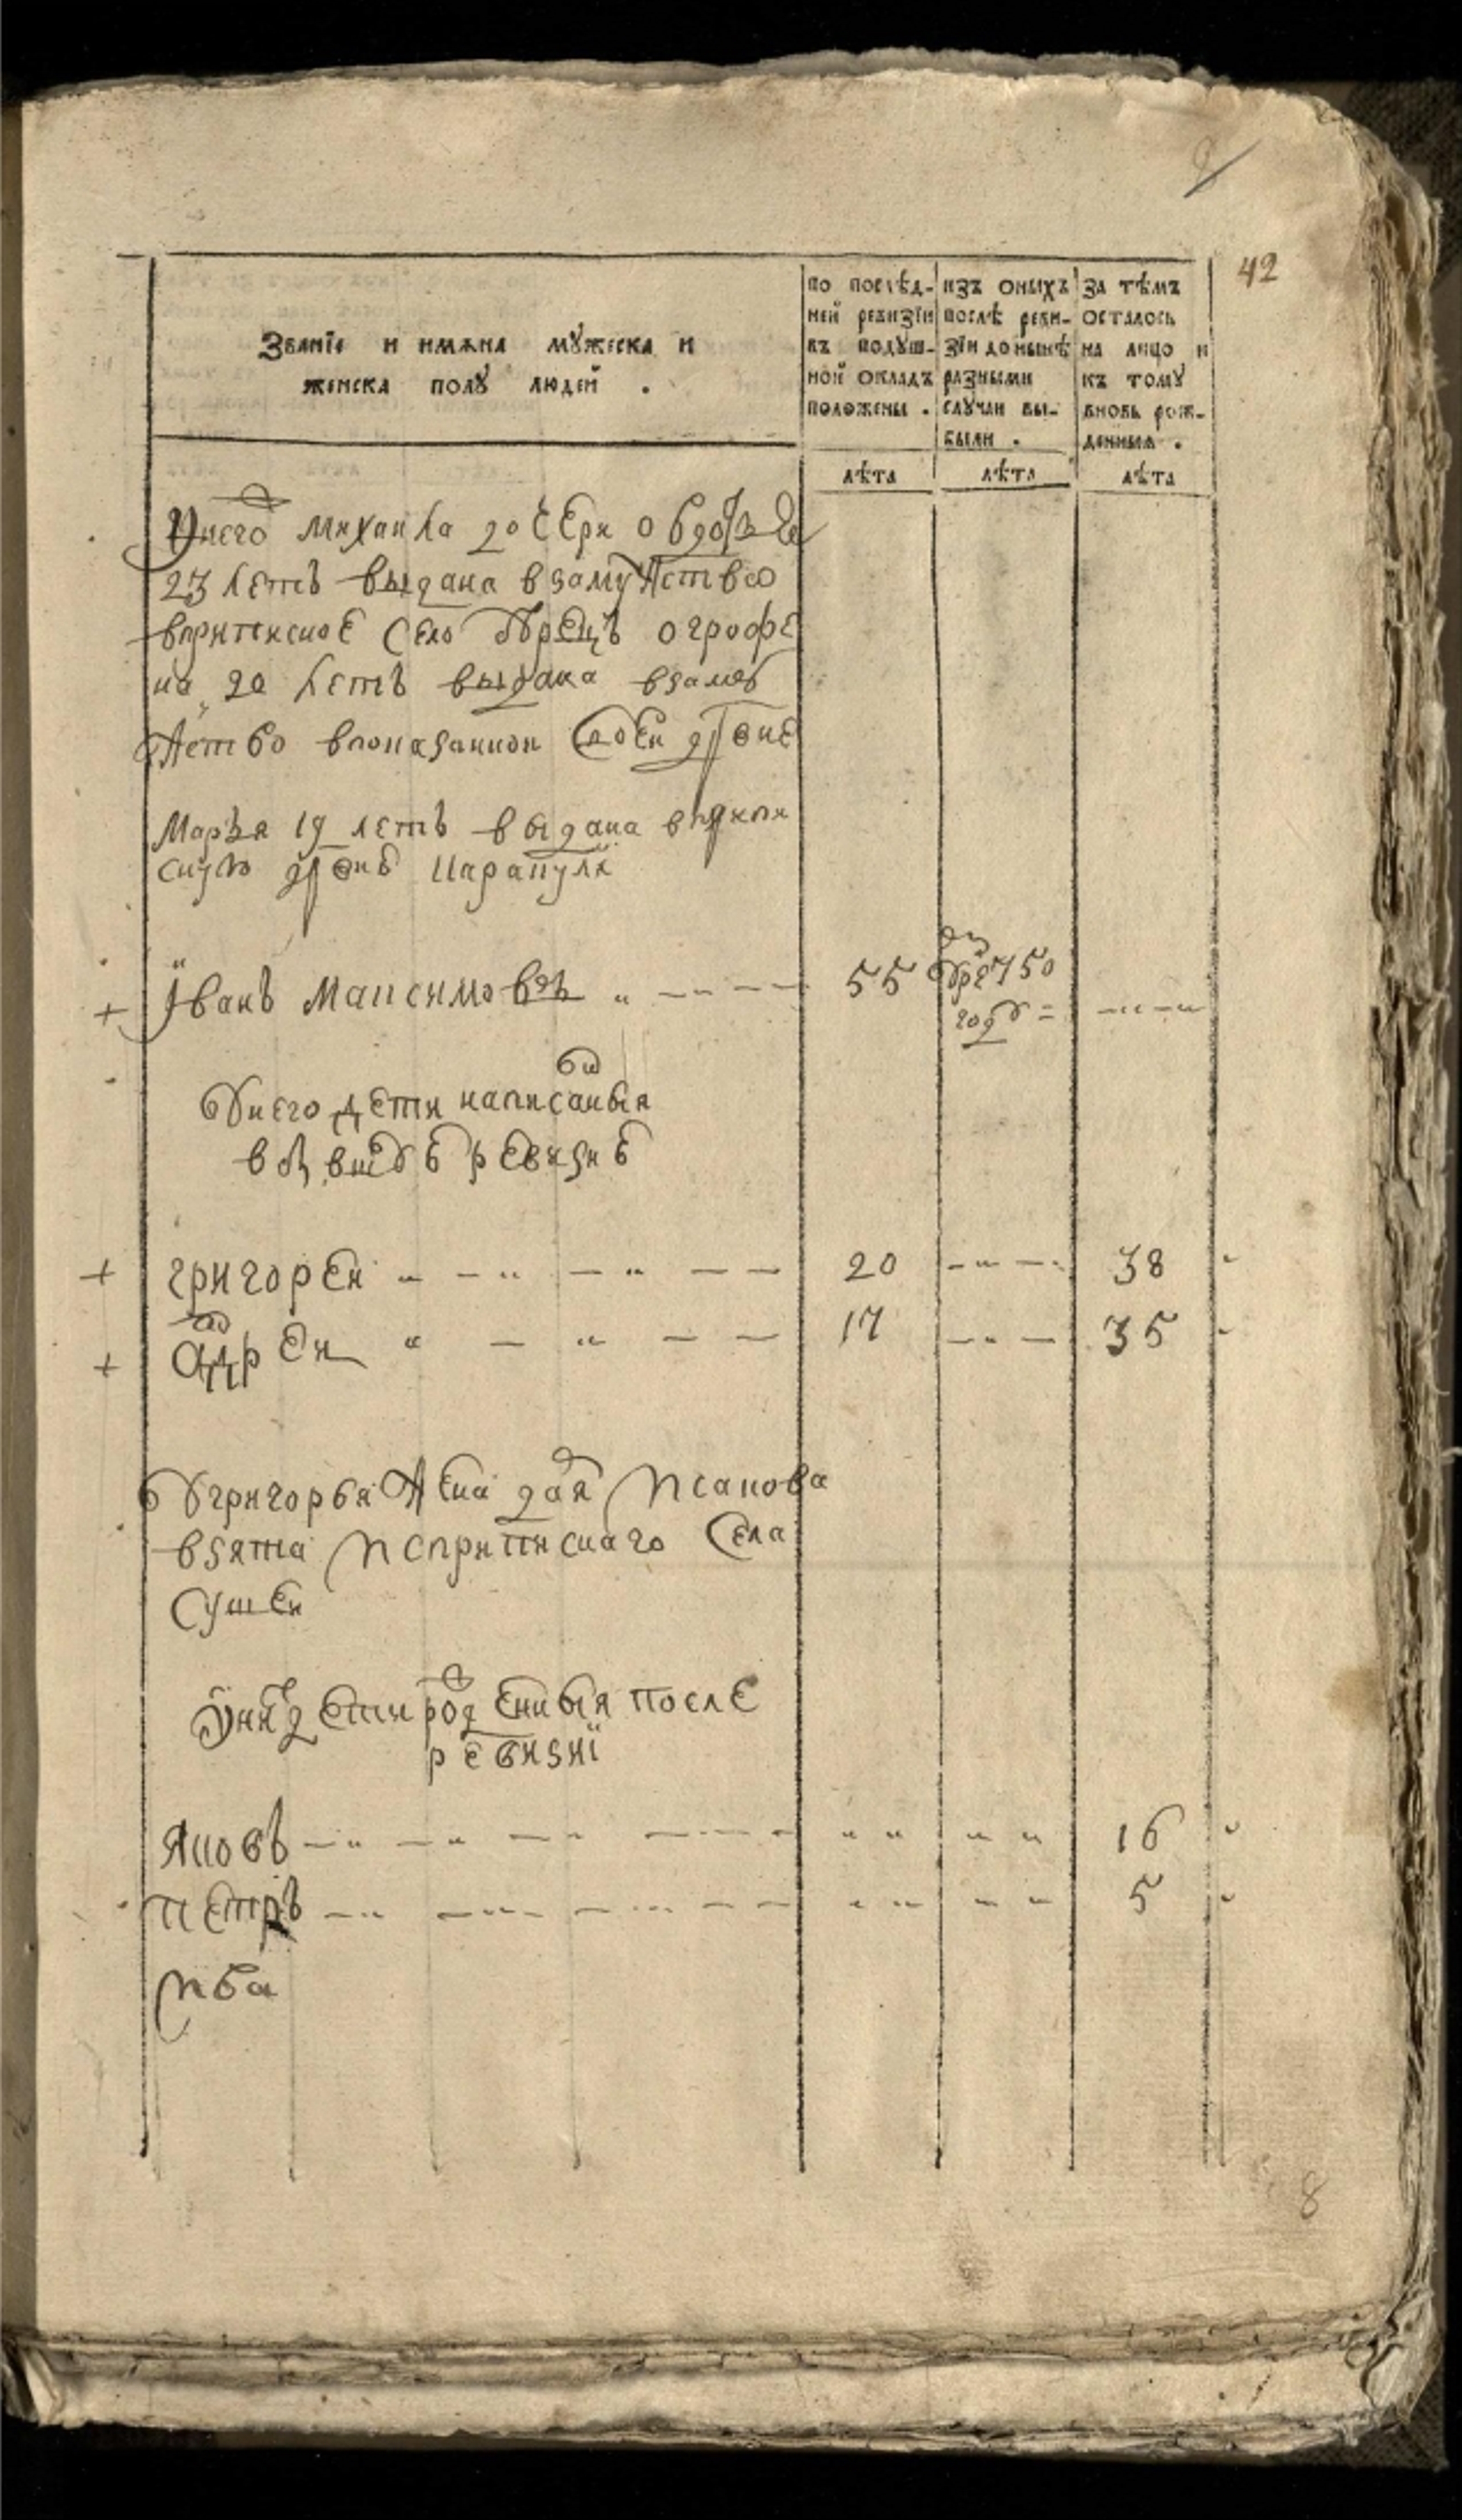 42
Званїе и имѧна мꙋжеска и
женска полꙋ людей .
по послѣд-
ней ревизїи
въ подꙋш-
ной окладъ
положены .
изъ оныхъ
послѣ реви-
зїи до нынѣ
разными
случаи вы-
были .
за тѣмъ
осталось
на лицо и
къ тому
вновь рож-
денныя .
лѣта лѣта лѣта
У него михаила дочери овдотья
23 летъ выдана взамужство
вприписное село огрофе
на 20 летъ выдана взамꙋ
жство впоказанной деревне
Марья 19 летъ выдана вприпи
сную деревню Карапули
Іванъ Максимовъ 55 750
годꙋ
Ꙋ него дети написаныя
в ревизиѣ
григорей 20 38
андрей 17 35
Ꙋ григорья жена дарья исакова
взята исприписнаго села
сушек
У них дети рожденныя после
ревизиї
яковъ 16
петръ 5
8